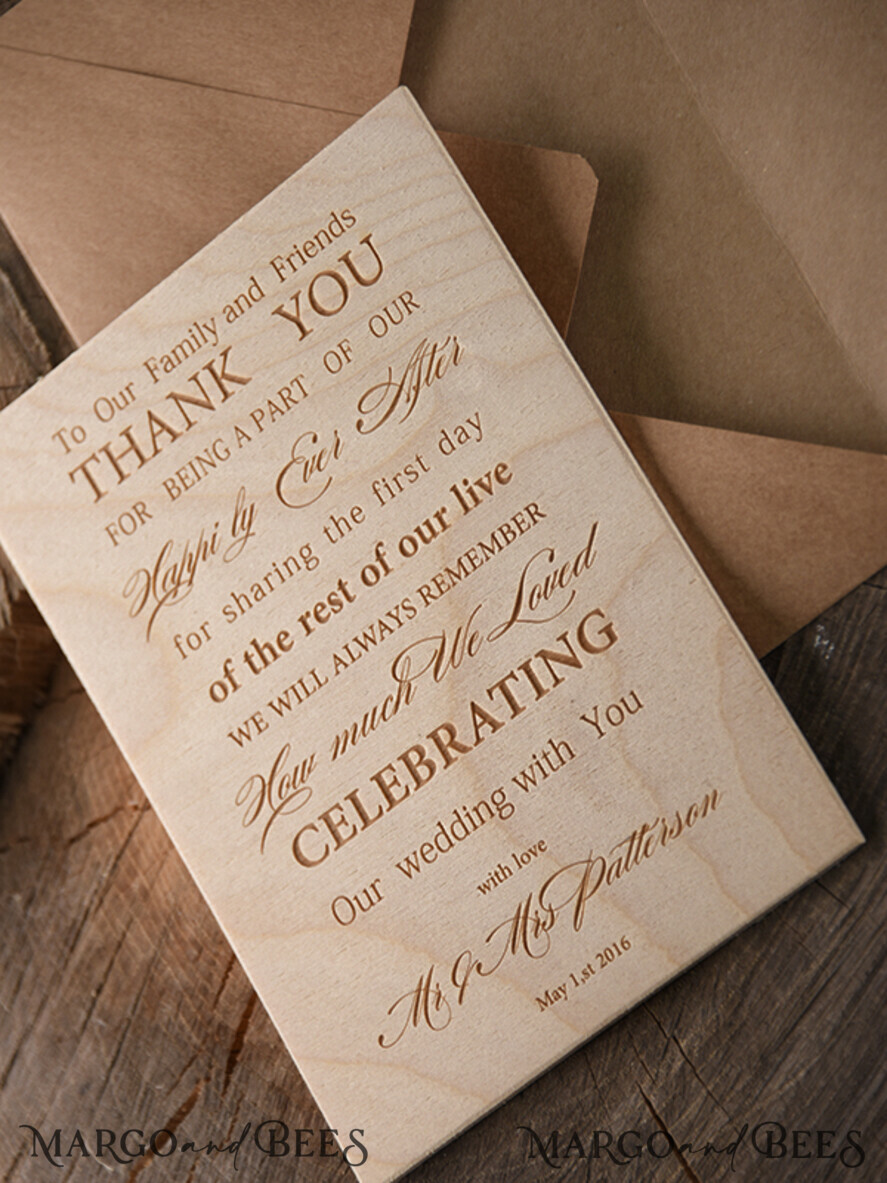 To Our Family and Friends
THANK YOU
FOR BEING A PART OF OUR
Happi ly Ever After
for sharing the first day
of the rest of our live
WE WILL ALWAYS REMEMBER
How much We Loved
CELEBRATING
Our wedding with You
with love
Mr & Mrs Patterson
May 1,st 2016
MARGO and BEES MARGO and BEES